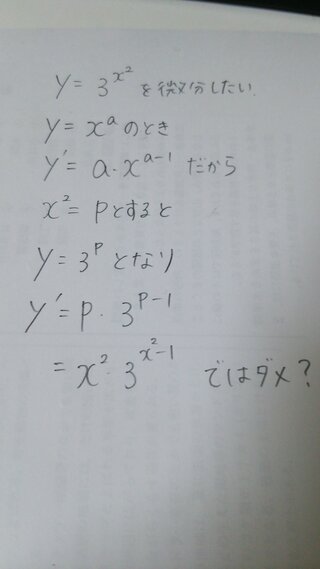 y = 3^{x^2} を微分したい
y = x^a のとき
y' = a・x^{a-1} だから
x^2 = p とすると
y = 3^p となり
y' = p・3^{p-1}
= x^2・3^{x^2-1} ではダメ?